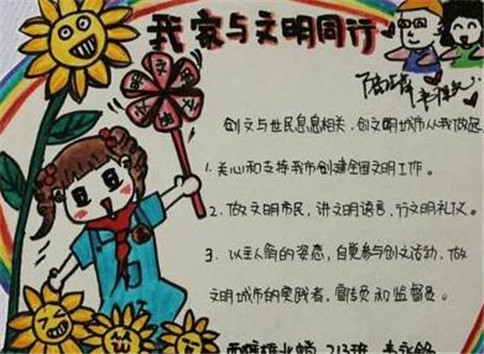 我家与文明同行
创文与世民息息相关,创文明城市从我做起
1.关心和支持我市创建全国文明工作。
2.做文明市民,讲文明语言,行文明礼仪。
3.以主人翁的姿态,自觉参与创文活动,做
文明城市的实践者、宣传员和监督员。
213班